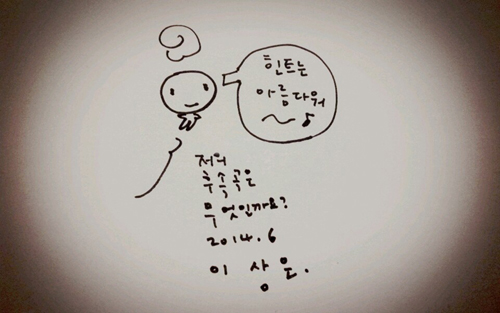 힌트는
아름다워
~♪
저의
후속곡은
무엇인까요?
2014.6
이상은.